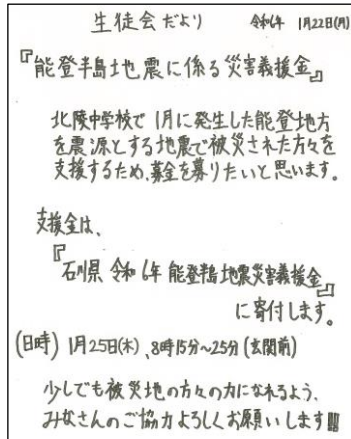 生徒会だより 令和6年 1月22日(月)
『能登半島地震に係る災害義援金』
北陵中学校で1月に発生した能登地方
を震源とする地震で被災された方々を
支援するため、募金を募りたいと思います。
支援金は、
『石川県 令和6年 能登半島地震災害義援金』
に寄付します。
(日時) 1月25日(木)、8時15分~25分(玄関前)
少しでも被災地の方々の力になれるよう、
みなさんのご協力よろしくお願いします!!!